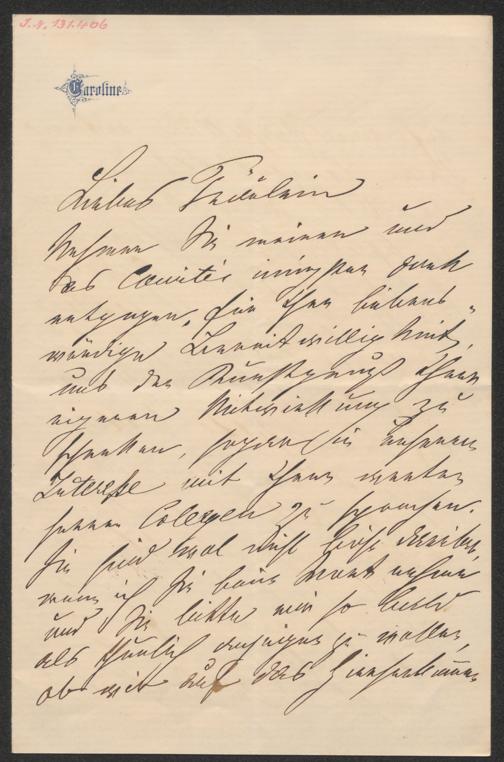 J.N. 131.406
Caroline
Liebes Fräulein
Nehmen Sie meinen und
des Comités innigsten Dank
entgegen, für Ihre liebens-
würdige Bereitwilligkeit,
uns den Kunstgenuß Ihrer
eigenen Mitwirkung zu
schenken, sowie in unserem
Interesse mit Ihren werten
Herren Colegen zu sprechen.
Sie sind wol nicht böse darüber,
wenn ich Sie beim Wort nehme
und Sie bitte mir so bald
als thunlich anzeigen zu wollen,
ob wir auf das